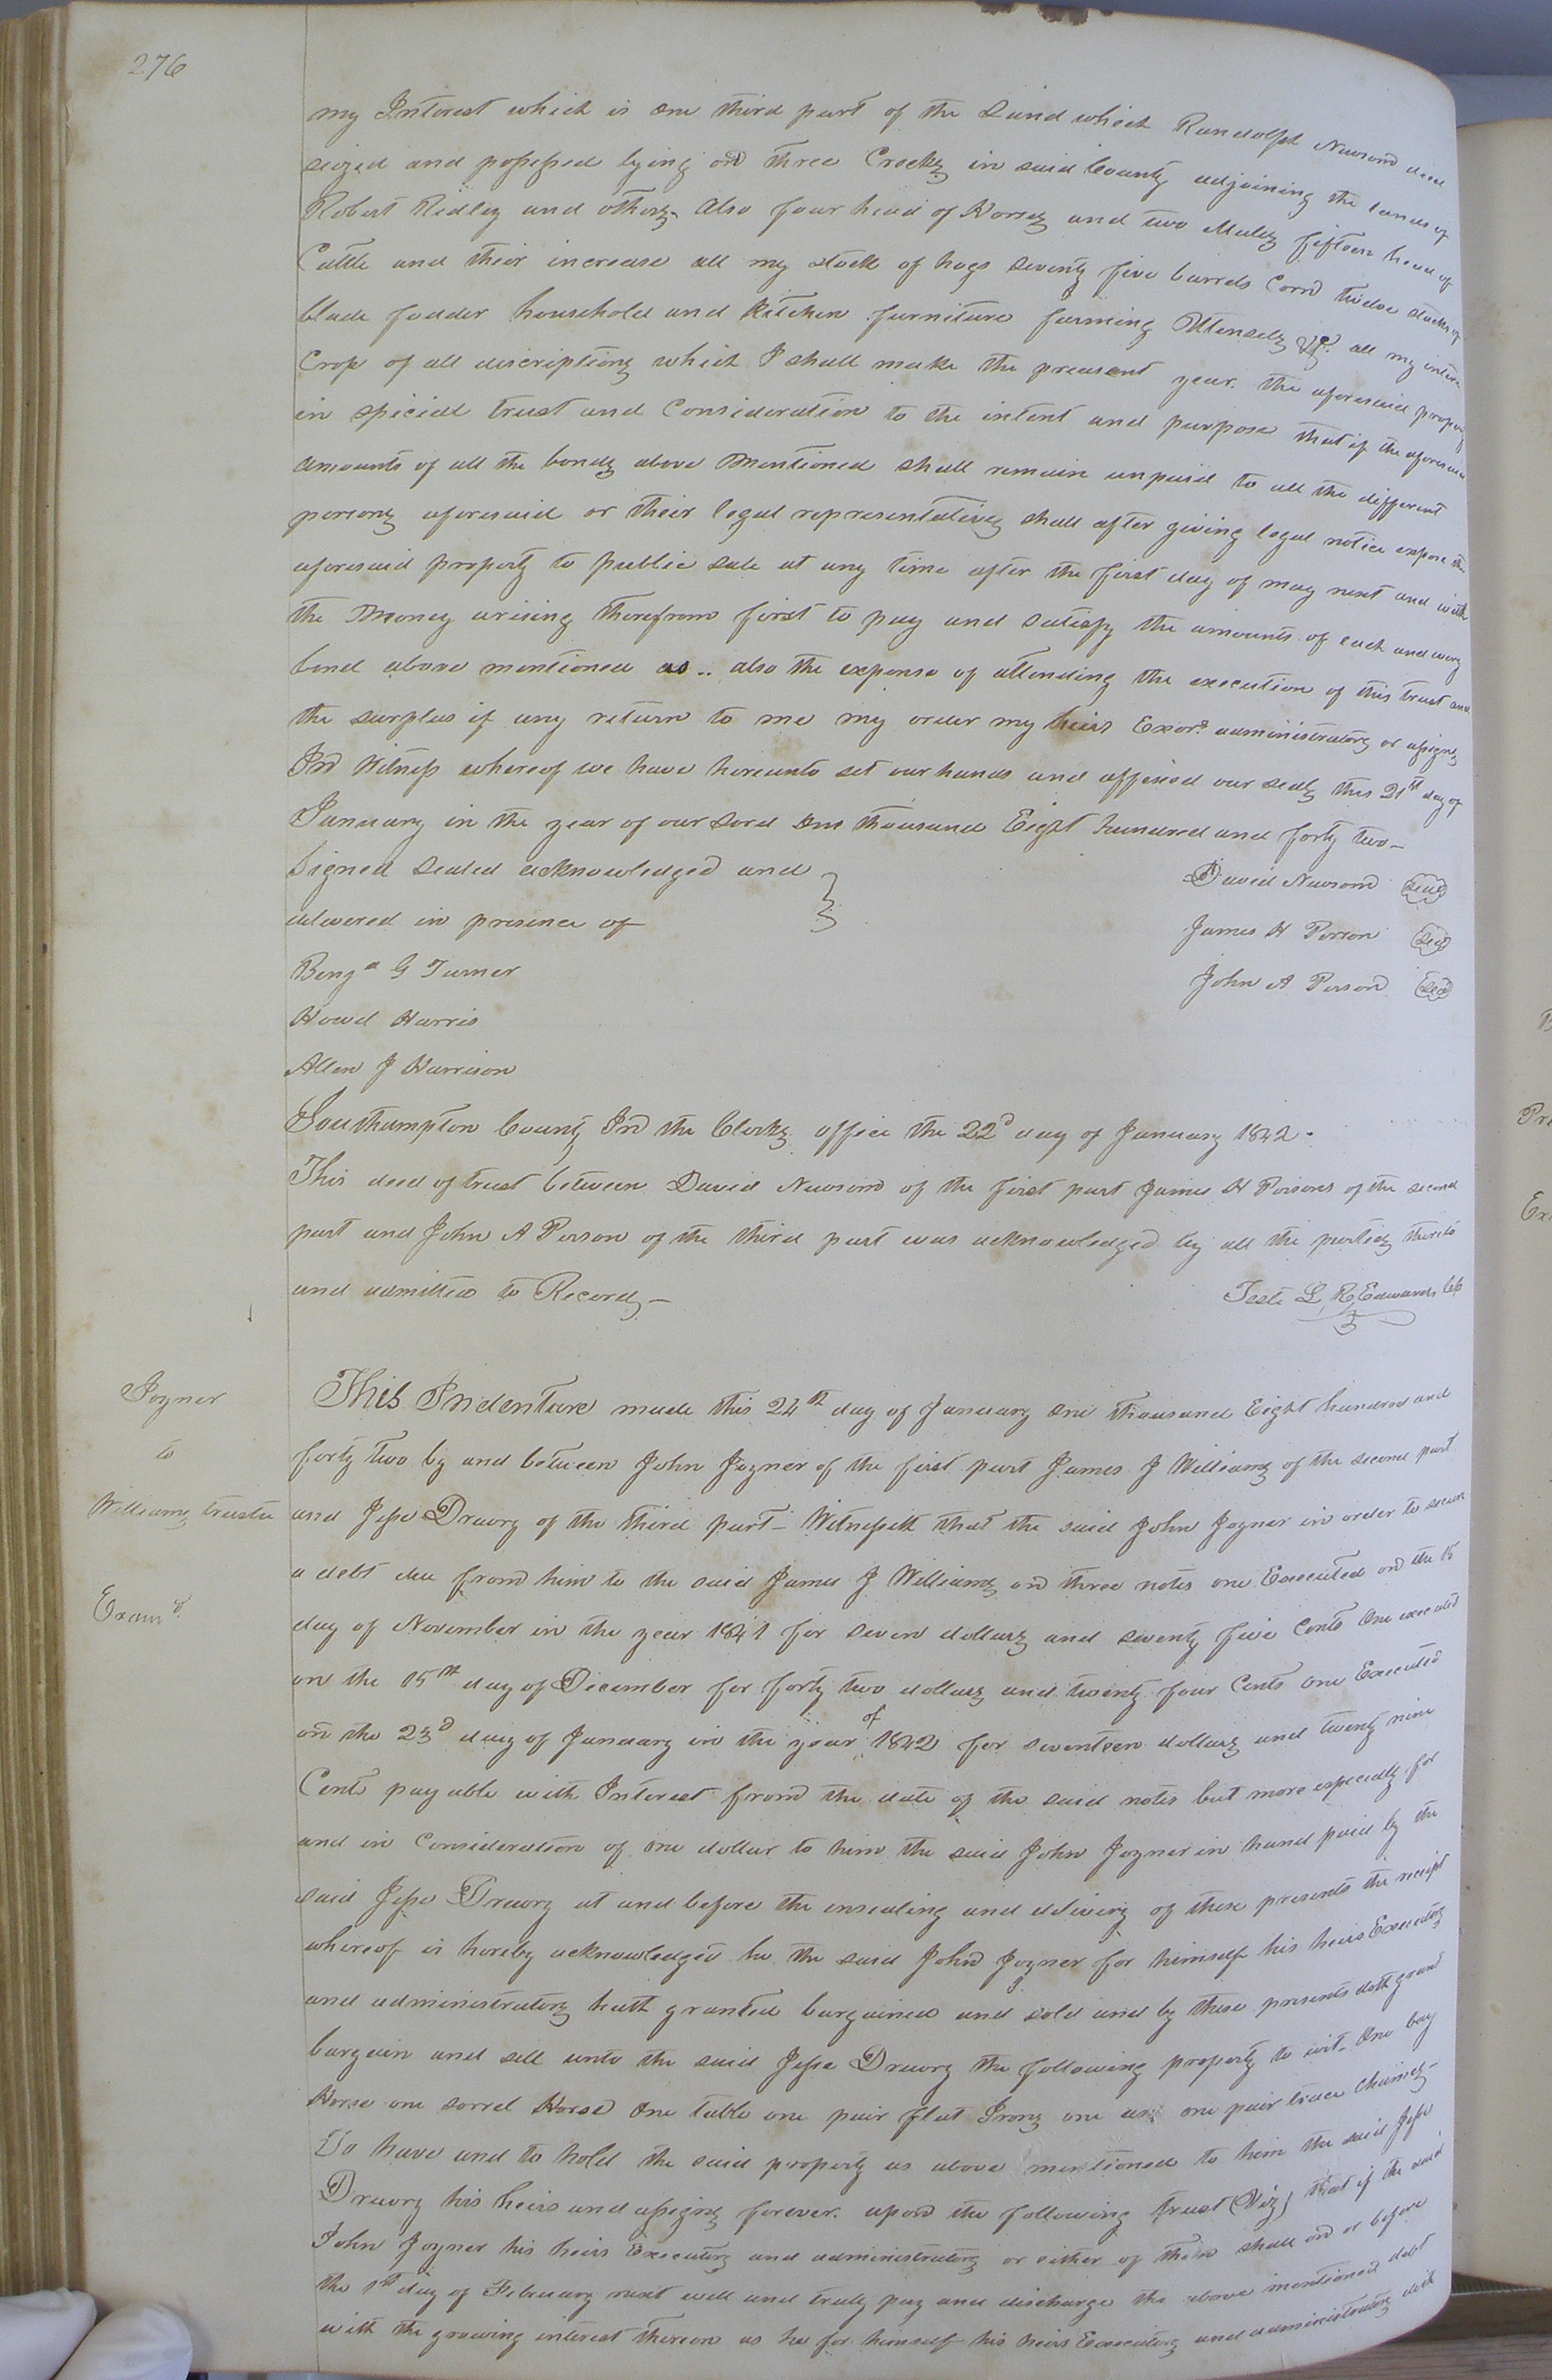 276
my Interest which is one third part of the Land which Randolph Newsom decd
seized and possessed lying on Three Creeks in said County adjoining the lands of
Robert Ridley and others. Also four head of Horses and two Mules fifteen head of
Cattle and their increase all my stock of hogs seventy five barrels Corn twelve stacks of
blade fodder household and Kitchen furniture farming Utensels &c. all my intire
Crop of all discriptions which I shall make the preasent year. the aforesaid property
in special trust and Consideration to the intent and purpose that if the aforesaid
amounts of all the bonds above Mentioned shall remain unpaid to all the different
persons aforesaid or their legal representatives shall after giving legal notice expose the
aforesaid property to public sale at any time after the first day of may next and with
the Money arising therefrom first to pay and satisfy the amounts of each and every
bond above mentioned as .. also the expense of attending the execution of this trust and
the surplus if any return to me my order my heirs Exors. administrators or assigns
In Witness whereof we have hereunto set our hands and affixed our seals this 21st day of
January in the year of our Lord One thousand Eight hundred and forty two—
Signed sealed acknowledged and
David Newsom seal
delivered in presence of
James H Person seal
Benja G Turner
John A Person seal
Howd Harris
Allen J Harrison
Southampton County In the Clerks office the 22d day of January 1842.
This deed of trust between David Newsom of the first part James H Persons of the second
part and John A Person of the third part was acknowledged by all the parties thereto
and admitted to Record,—
Teste L. R. Edwards CC
Joyner
to
Williams trustee
Examd.
This Indenture made this 24th day of January One thousand Eight hundred and
forty two by and between John Joyner of the first part James J Williams of the second part
and Jesse Drewry of the third part— Witnesseth that the said John Joyner in order to secure
a debt due from him to the said James J Williams on three notes one Executed on the 15
day of November in the year 1841 for seven dollars and seventy five Cents One executed
on the 15th day of December for forty two dollars and twenty four Cents One Executed
on the 23d day of January in the year of 1842 for seventeen dollars and twenty nine
Cents payable with Interest from the date of the said notes but more especially for
and in Consideration of one dollar to him the said John Joyner in hand paid by the
said Jesse Drewry at and before the ensealing and delivery of these presents the receipt
whereof is hereby acknowledged he the said John Joyner for himself his heirs Executors
and administrators hath granted bargained and sold and by these presents doth grant
bargain and sell unto the said Jesse Drewry the following property to wit. One bay
Horse one sorrel Horse One table one pair flat Irons one one pair trace chains—
To have and to hold the said property as above mentioned to him the said Jesse
Drewry his heirs and assigns forever. upon the following trust (Viz) that if the said
John Joyner his heirs Executors and administrators or either of them shall on or before
the 1st day of February next well and truly pay and discharge the above mentioned debt
with the growing interest thereon as he for himself his heirs Executors and administrators doth